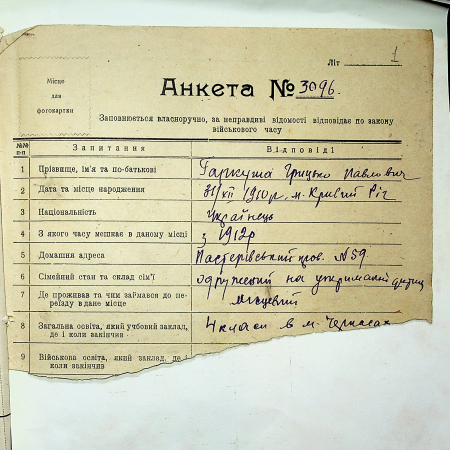 Літ 1
Місце
для
фотокартки
Анкета № 3096.
Заповнюється власноручно, за неправдиві відомості відповідає по закону
військового часу
№№
п-п
Запитання
Відповіді
1 Прізвище, ім'я та по-батькові Гаркуша Грицько Павлович
2 Дата та місце народження 31/XII 1910 р, м. Кривий Ріг
3 Національність Українець
4 З якого часу мешкає в даному місці з 1912р
5 Домашня адреса Пастерівський пров. №59
6 Сімейний стан та склад сім'ї одружений на утриманні
7 Де проживав та чим займався до пе-
реїзду в дане місце Місцевий
8 Загальна освіта, який учбовий заклад,
де і коли закінчив 4 класи в м. Черкасах
9 Військова освіта, який заклад, де і
коли закінчив